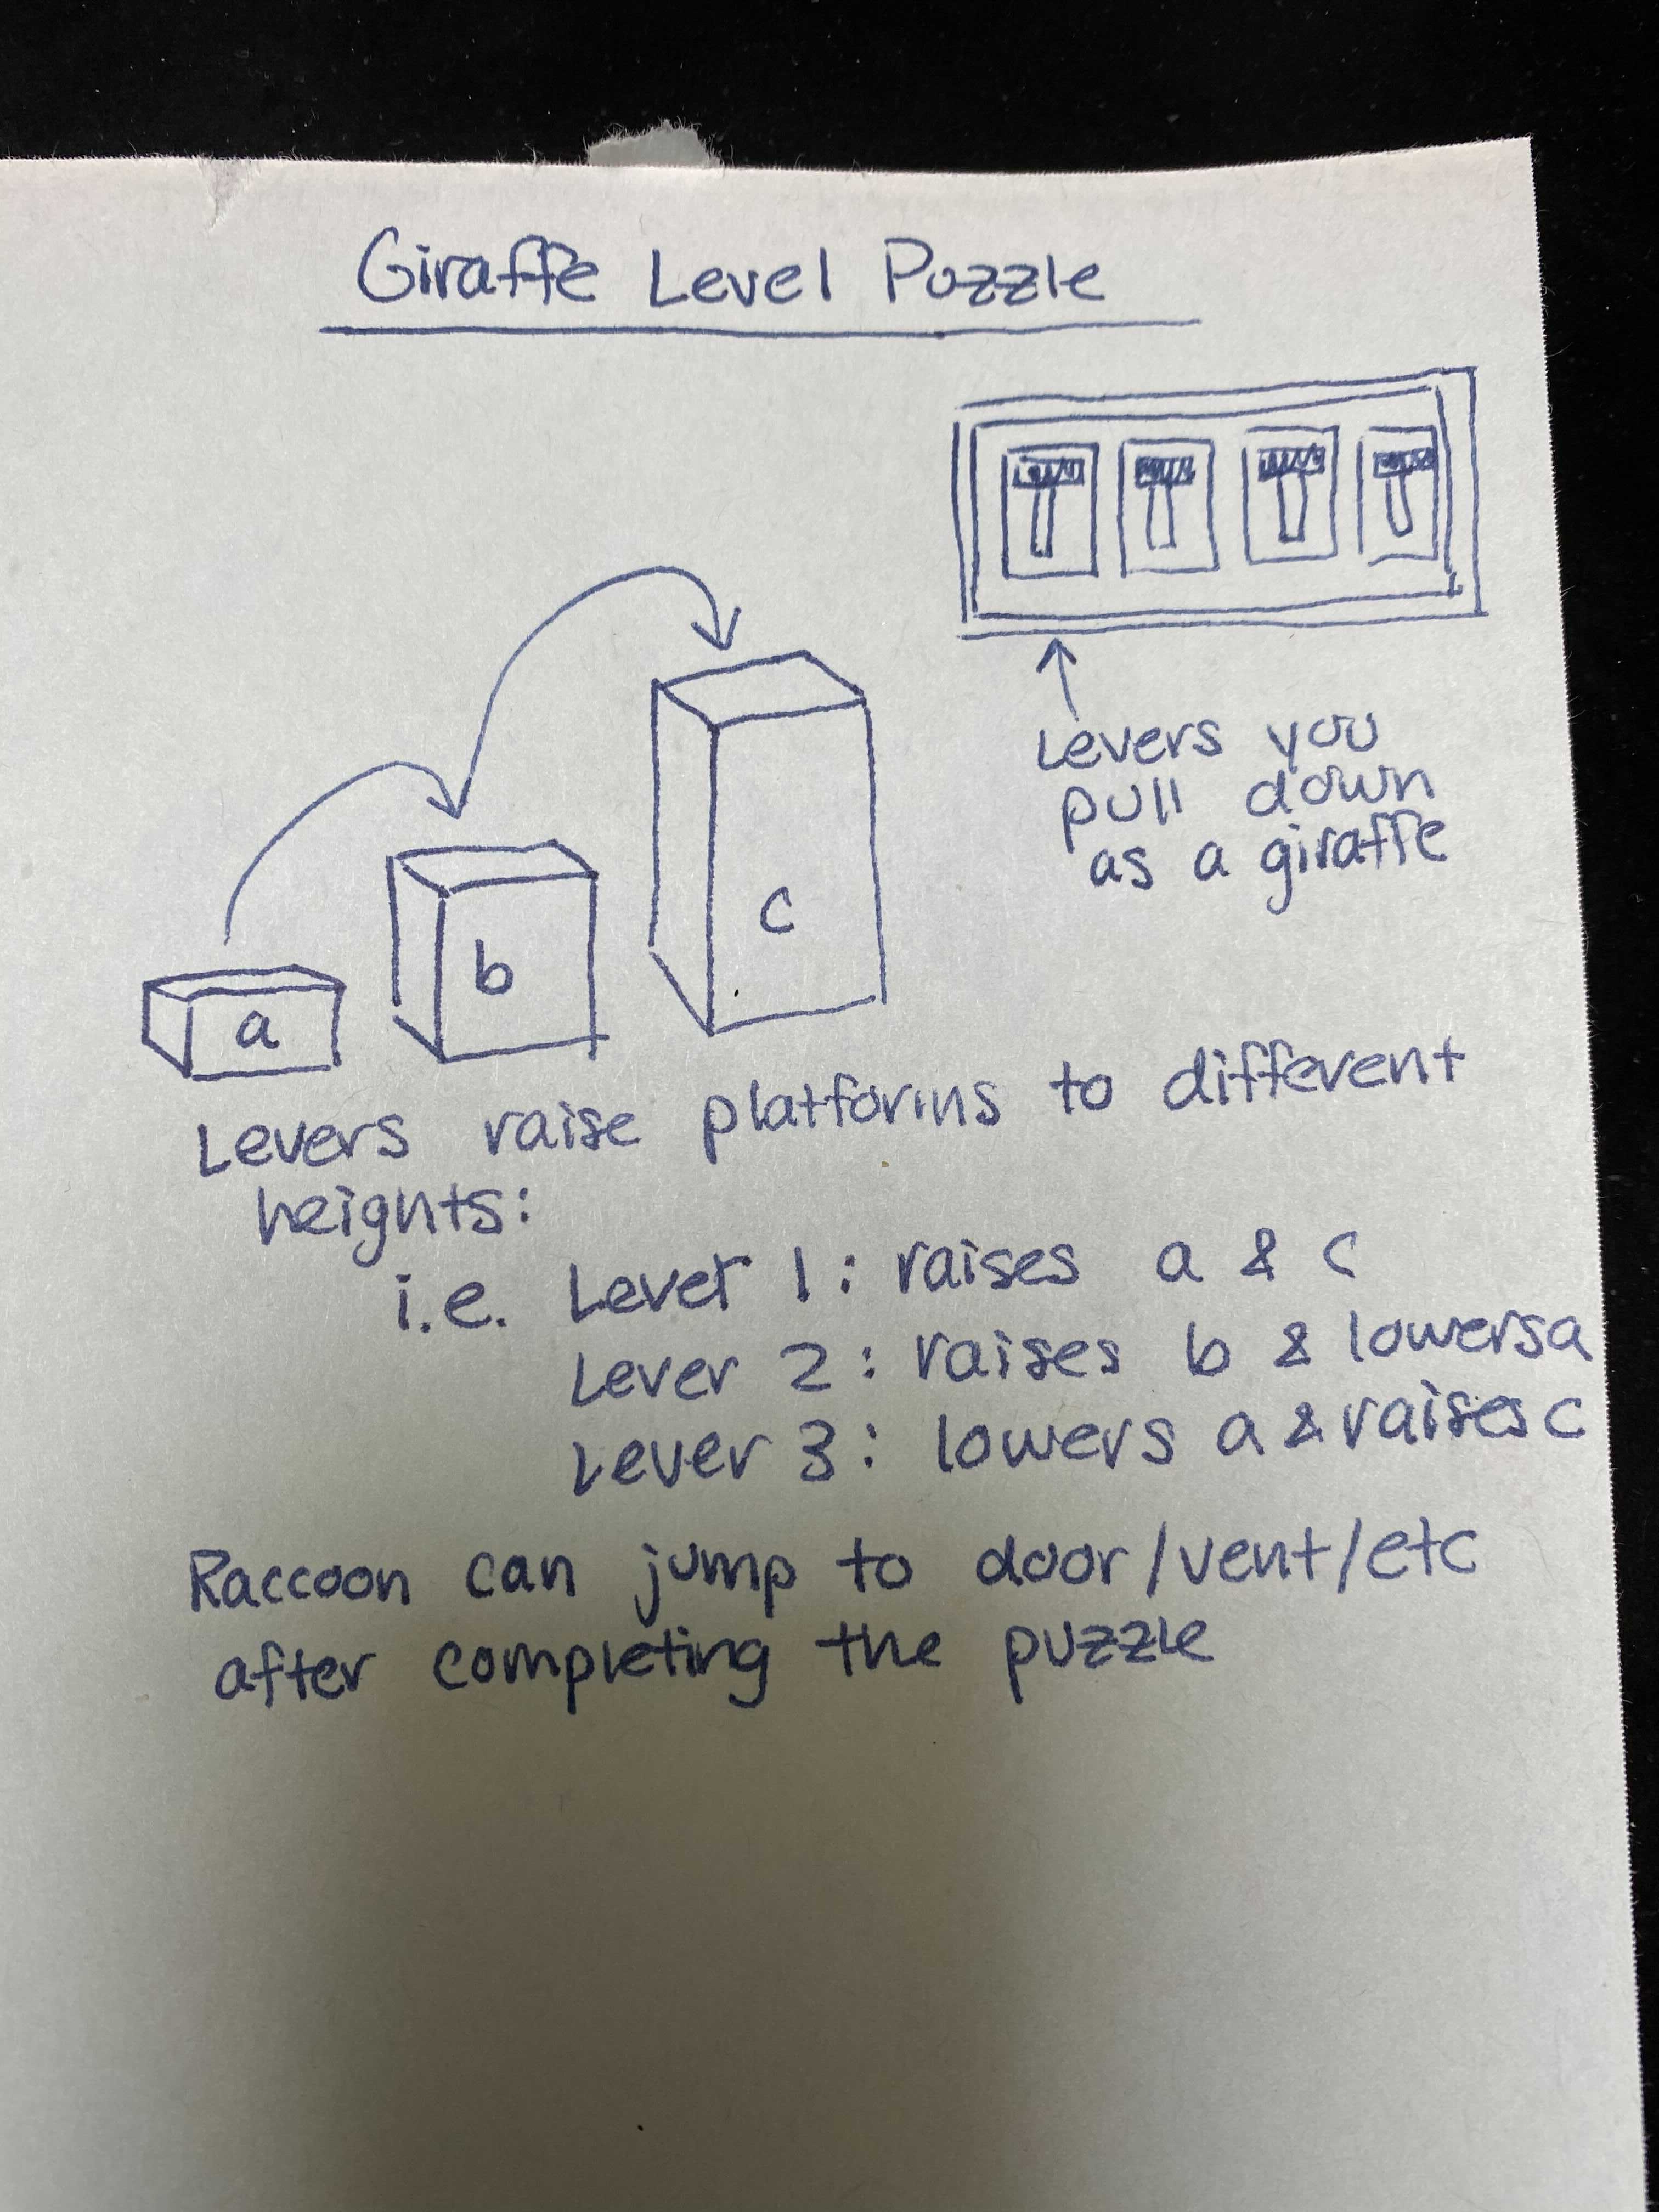 Giraffe Level Puzzle
Levers you
pull down
as a giraffe
a
b
c
Levers raise platforms to different
heights:
i.e. Lever 1: raises a & c
Lever 2: raises b & lowers a
Lever 3: lowers a & raises c
Raccoon can jump to door/vent/etc
after completing the puzzle